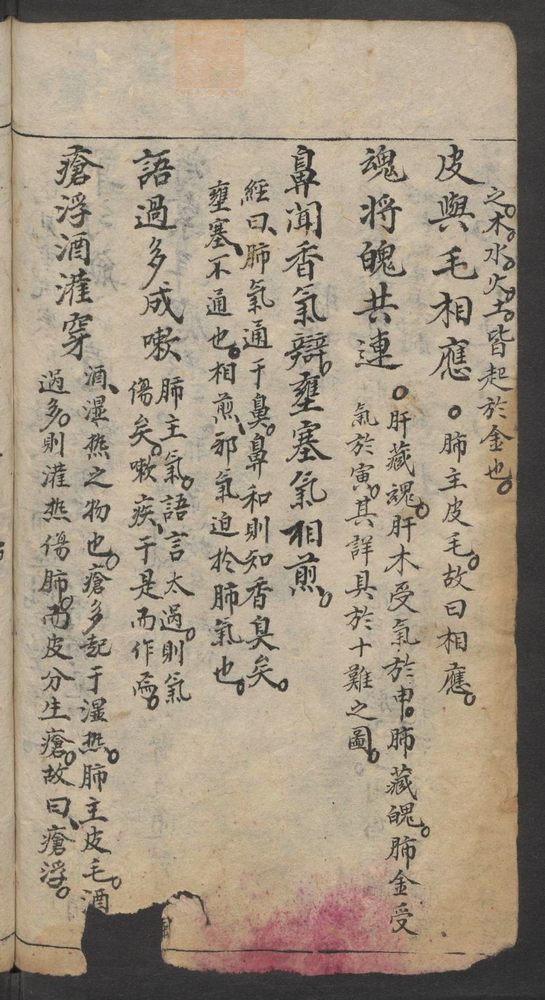 之。木。水。火。土。皆起於金也。
皮與毛相應。肺主皮毛。故曰相應。
魂将魄共連。肝藏魂。肝木受氣於申。肺藏魄。肺金受
氣於寅。其詳具於十難之圖。
鼻聞香氣辯。壅塞氣相煎。
経曰、肺氣通于鼻。鼻和則知香臭矣。
壅塞、不通也。相煎、邪氣迫於肺氣也。
語過多成嗽 肺主氣。語言太過。則氣
傷矣。嗽疾、于是而作焉。
瘡浮酒灌穿 酒、湿热之物也。瘡多起于湿热。肺主皮毛。酒
過多。則灌热傷肺。而皮分生瘡。故曰、瘡浮。